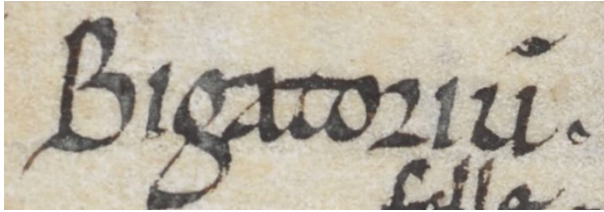 Bigatoriū.